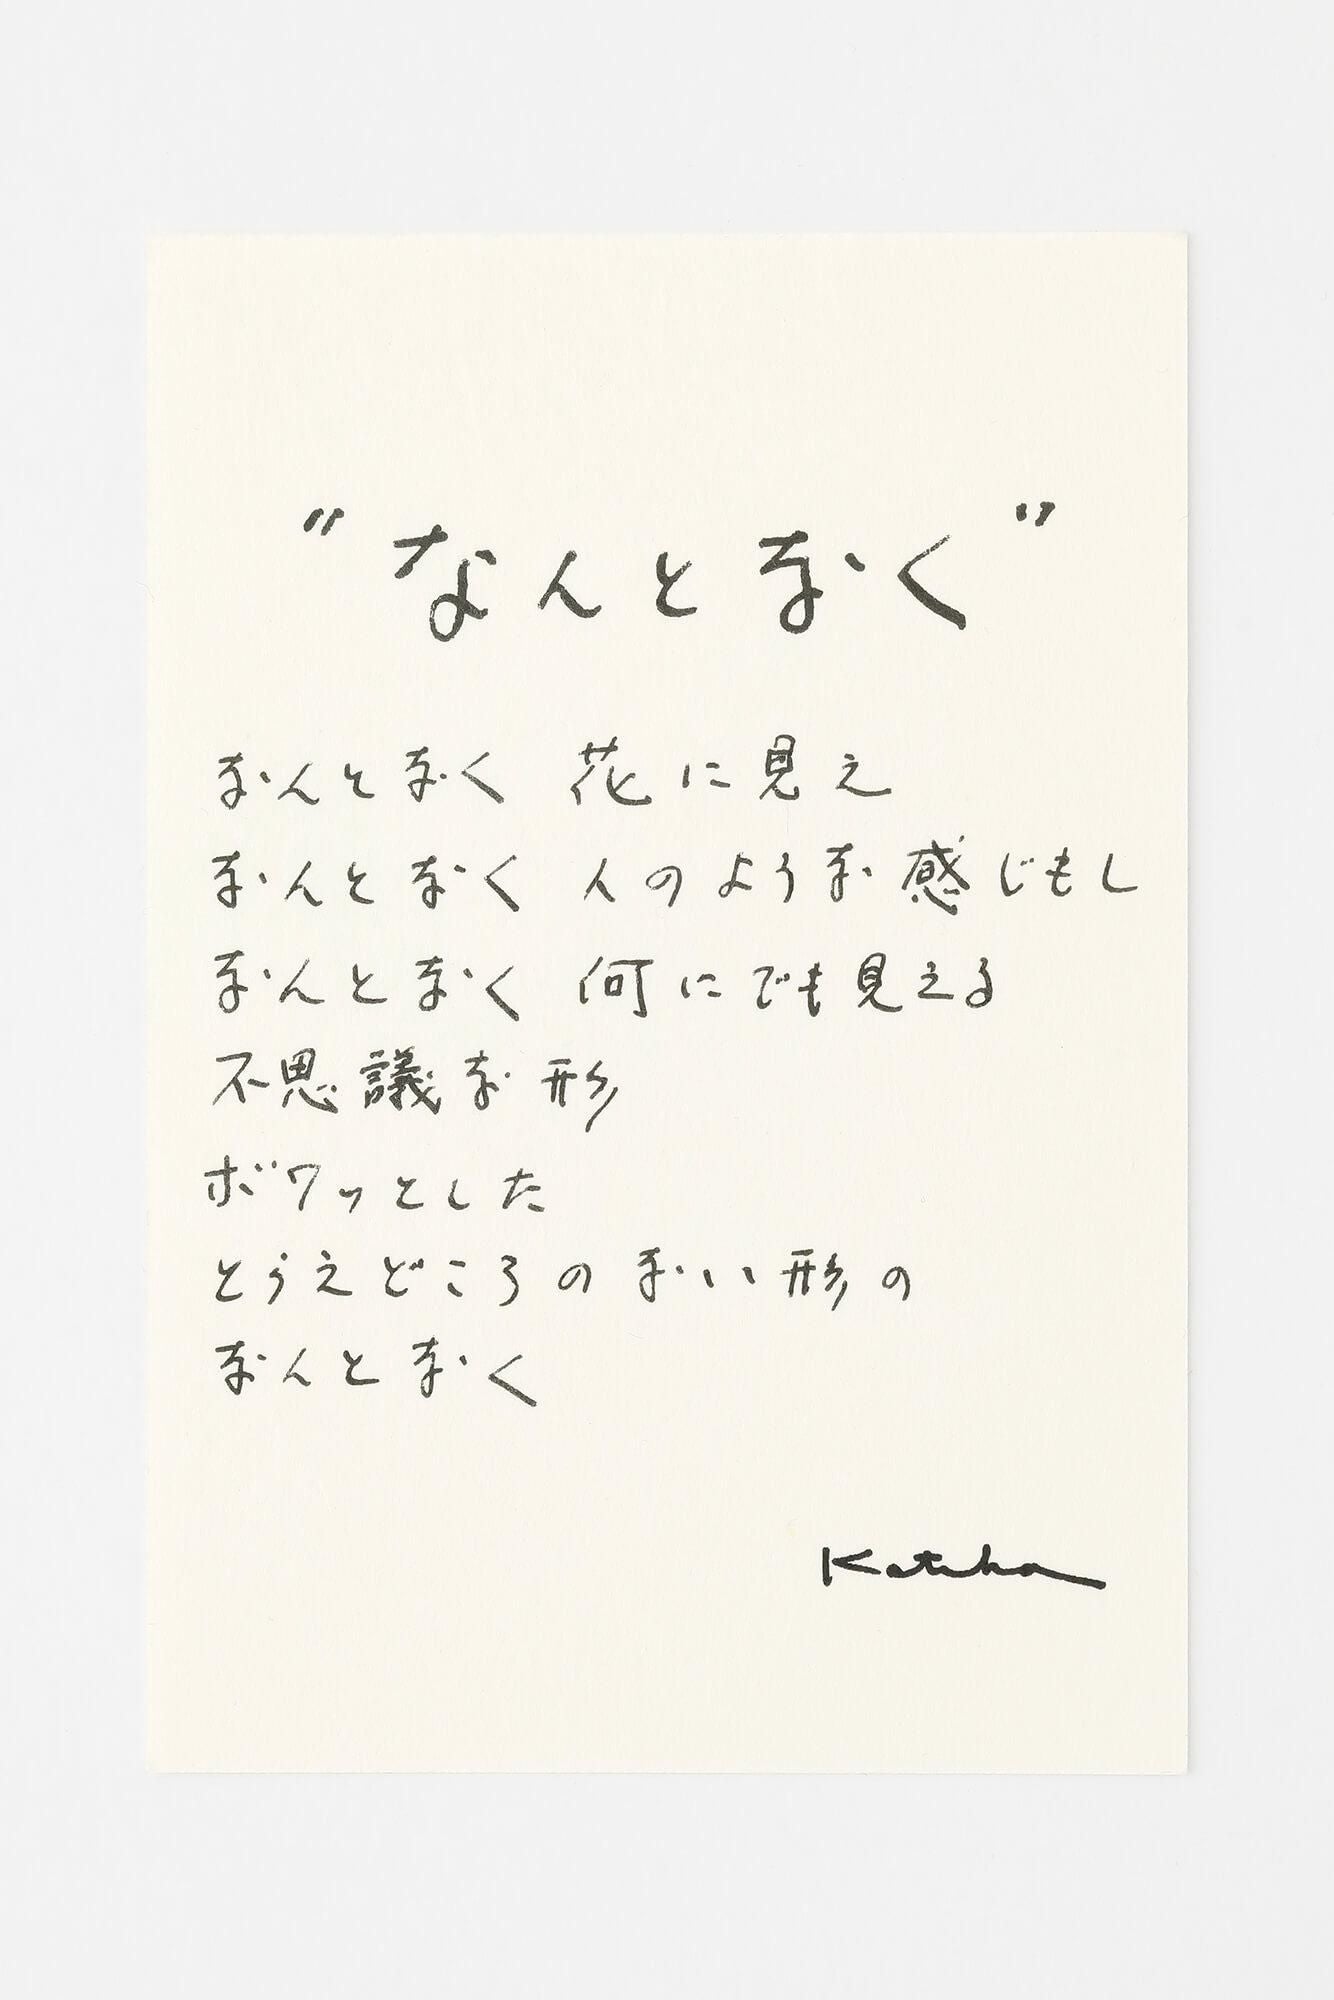 "なんとなく"
なんとなく 花に見え
なんとなく 人のような感じもし
なんとなく 何にでも見える
不思議な形
ボワッとした
とらえどころのない形の
なんとなく